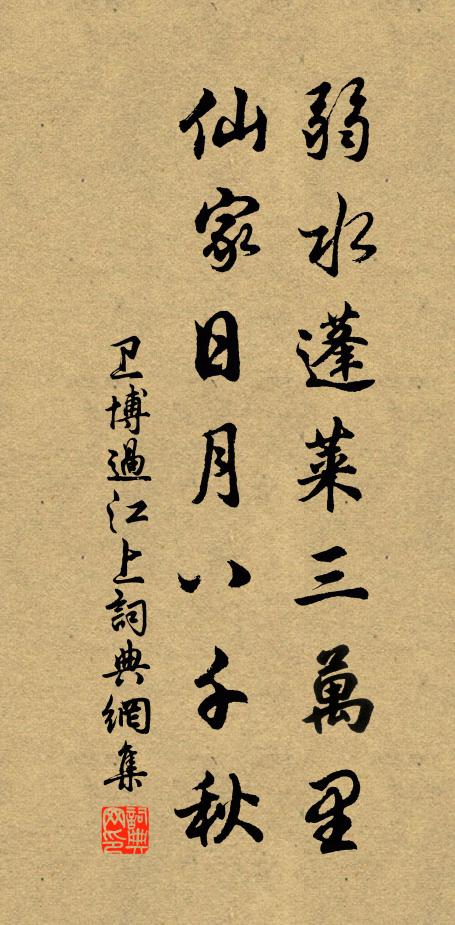 弱水蓬萊三萬里
仙家日月八千秋
卫博過江上詞典網集
詞典網印